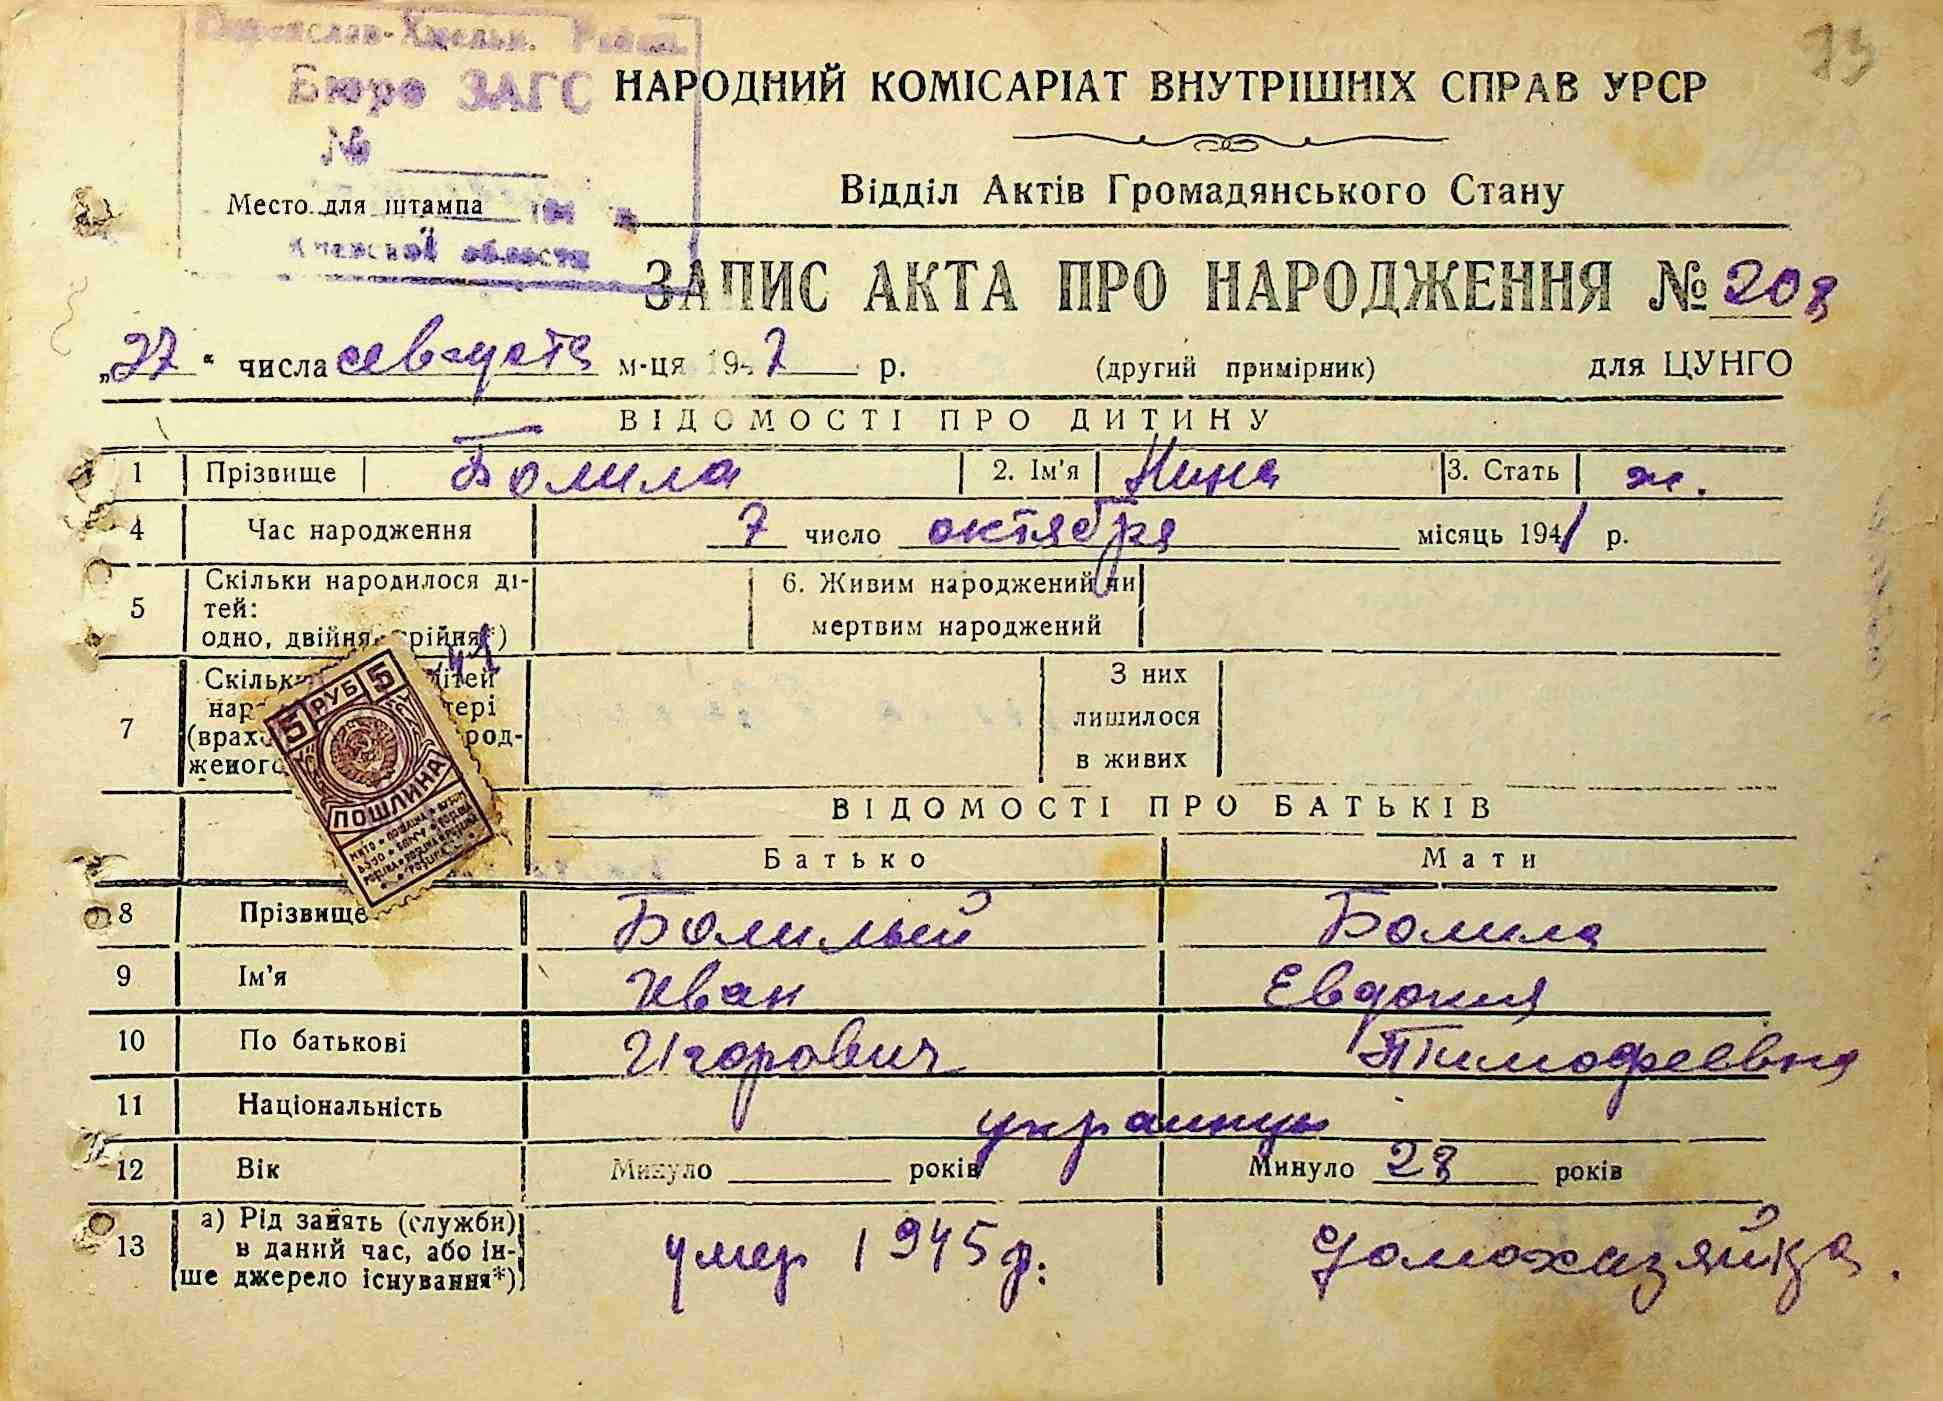 Переяслав-Хмельн. Район.
Бюро ЗАГС
№
Место для штампа
Киевской области
73
НАРОДНИЙ КОМІСАРІАТ ВНУТРІШНІХ СПРАВ УРСР
Відділ Актів Громадянського Стану
ЗАПИС АКТА ПРО НАРОДЖЕННЯ № 208
„27“ числа августа м-ця 1947 р. (другий примірник) для ЦУНГО
ВІДОМОСТІ ПРО ДИТИНУ
1 Прізвище Болила 2. Ім'я Нина 3. Стать ж.
4 Час народження 7 число октября місяць 1941 р.
5 Скільки народилося ді-
тей:
одно, двійня, трійня*)
6. Живим народжений чи
мертвим народжений
7 Скільки дітей
(врах род-
женого
З них
лишилося
в живих
5 РУБ 5
ПОШЛИНА
ВІДОМОСТІ ПРО БАТЬКІВ
Батько Мати
8 Прізвище Болилый Болила
9 Ім'я Иван Евдокия
10 По батькові Игорович Тимофеевна
11 Національність украинцы
12 Вік Минуло років Минуло 28 років
13 а) Рід занять (служби)
в даний час, або ін-
ше джерело існування*)
умер 1945 р. домохазяйка.